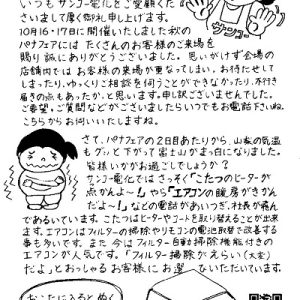 いつも サンコー電化を ご愛顧くだ
さいまして厚く御礼申し上げます。
10月16・17日に開催いたしました秋の
パナフェアには たくさんのお客様のご来場を
賜り誠にありがとうございました。思いがけず会場の
店舗内では お客様の来場が重なってしまい、お待たせして
しまったり、ゆっくりご相談を伺うことができなかったり、不行き
届きの点もあったか、と思います。申し訳ございませんでした。
ご要望、ご質問などがございましたらいつでもお電話下さいね。
こちらからお伺いいたしますね。
サンコー
さて、パナフェアの2日目あたりから、山梨の気温
もグッと下がって富士山がまっ白になりました。
皆様いかがお過ごしでしょうか?
サンコー電化では さっそく「こたつのヒーターが
点かんよ~!」やら「エアコンの暖房がきかん
だよ~!」などの電話があいつぎ、村長が痛ん
であるいています。こたつはヒーターやコードを取り替えることが出来
ます。エアコンはフィルターの掃除やリモコンの電池取替で改善する
事も多いです。また 今は フィルター自動掃除機能付きの
エアコンが人気です。「フィルター掃除がえらい(大変)
だよ」とおっしゃる お客様に お選びいただいています。
おこたに入ると ぬく